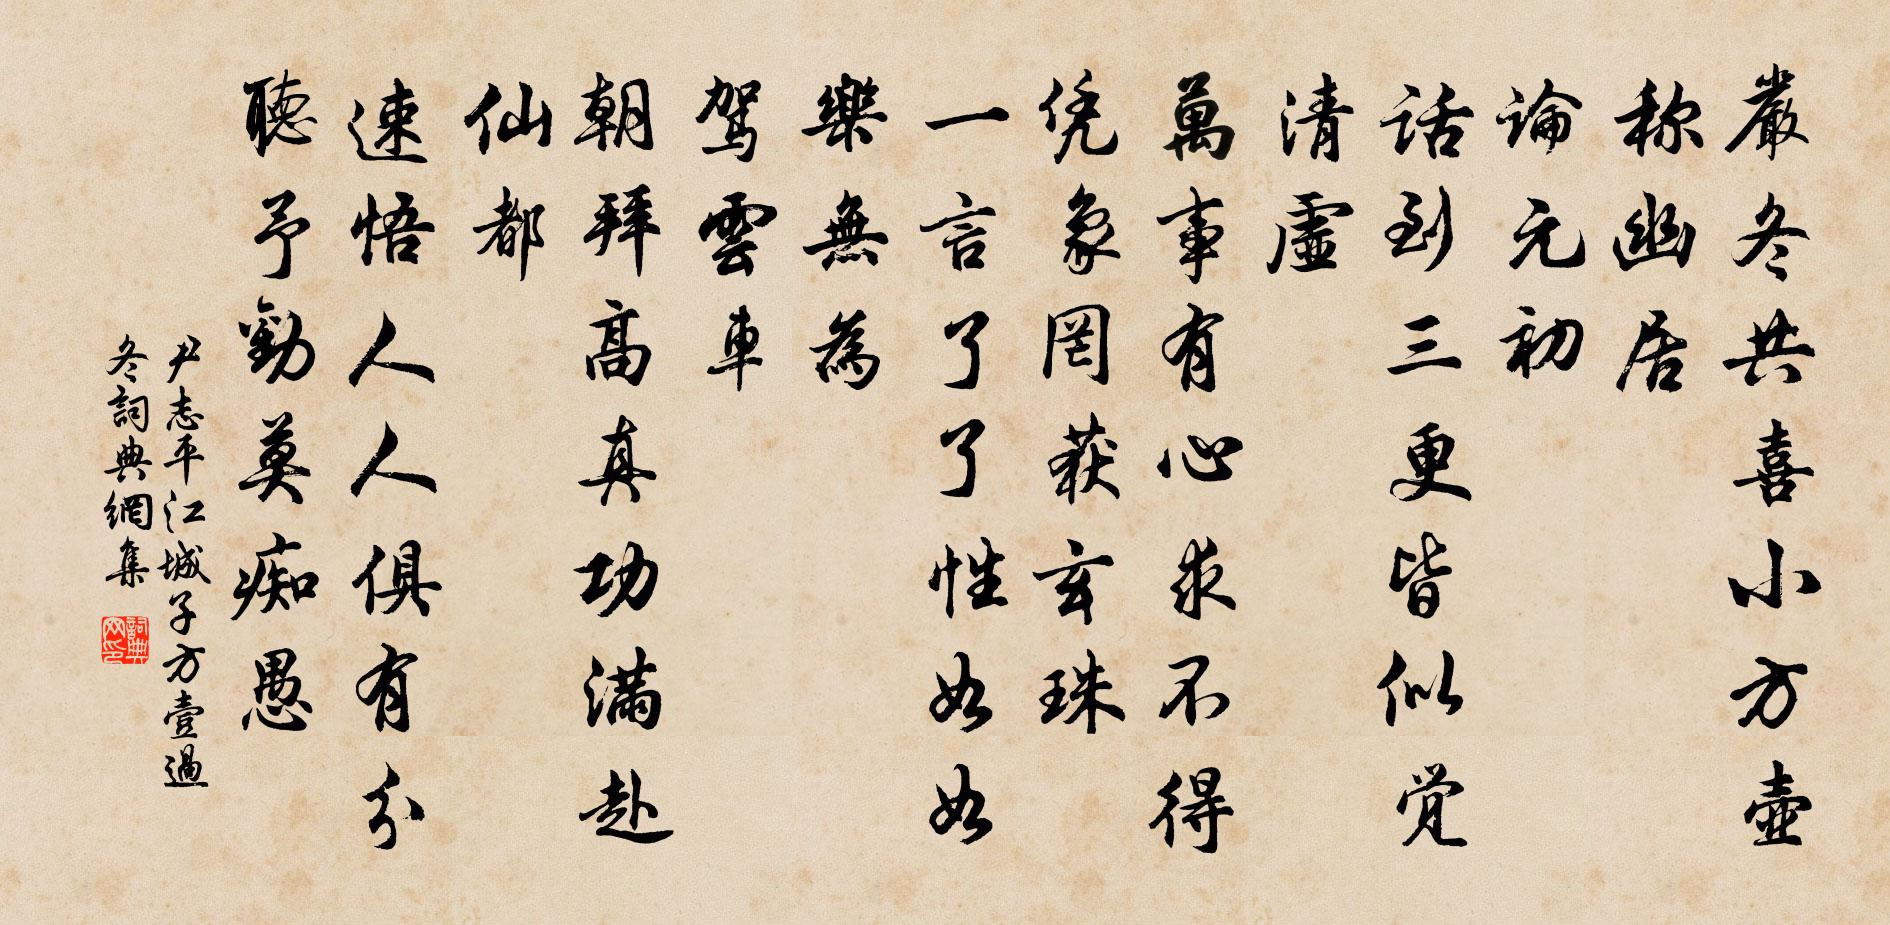 嚴冬共喜小方壺
称幽居
論元初
話到三更皆似覚
清虛
萬事有心求不得
凭象罔获玄珠
一言了了性如如
樂無為
駕雲車
朝拜高真功滿赴
仙都
速悟人人俱有分
聽予勸莫痴愚
尹志平江城子方壺過
冬詞典網集
詞典网印